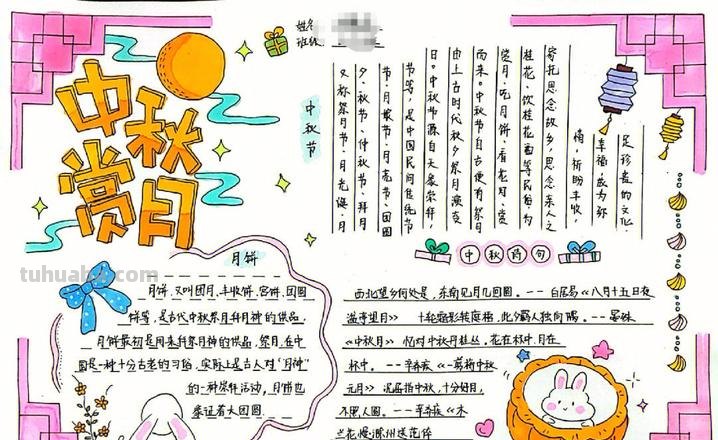 姓名
班级
中秋赏月
中秋节
又称祭月节、月光诞、月
夕、秋节、仲秋节、拜月
节、月娘节、月亮节、团圆
节等，是中国民间传统节
日。中秋节源自天象崇拜，
由上古时代秋夕祭月演变
而来。中秋节自古便有祭月
赏月、吃月饼、看花灯、赏
桂花、饮桂花酒等民俗，为
寄托思念故乡，思念亲人之
情，祈盼丰收、
幸福，成为弥
足珍贵的文化
月饼
月饼，又叫团月、丰收饼、宫饼、团圆
饼等，是古代中秋祭月拜月神的供品，
月饼最初是用来拜祭月神的供品，祭月，在中
国是一种十分古老的习俗，实际上是古人对"月神"
的一种崇拜活动，月饼也
象征着大团圆
中秋诗句
西北望乡何处是，东南见月几回圆。——白居易《八月十五日夜
湓亭望月》 十轮霜影转庭梧，此夕羁人独向隅。——晏殊
《中秋月》 忆对中秋丹桂丛，花在杯中，月在
杯中。——辛弃疾《一剪梅中秋
元月》 泥居指中秋，十分好月，
不照人圆。——辛弃疾《木
兰花慢滁州送范倅
tuhuabb.com